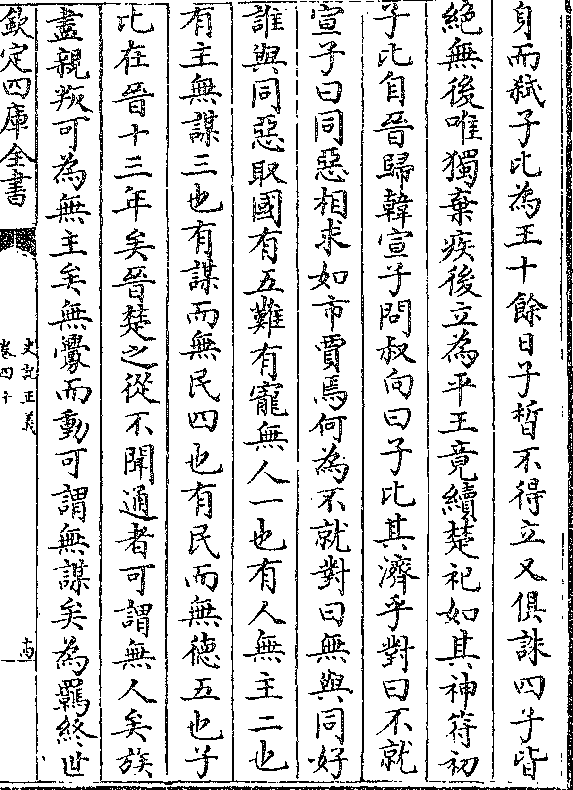 身而弑子比為王十餘日子晳不得立又俱誅四子皆
絕無後唯獨棄疾後立為平王竟續楚祀如其神符初
子比自晉歸韓宣子問叔向曰子比其濟乎對曰不就
宣子曰同惡相求如市賈焉何為不就對曰無與同好
誰與同惡取國有五難有寵無人一也有人無主二也
有主無謀三也有謀而無民四也有民而無德五也子
比在晉十三年矣晉楚之從不聞通者可謂無人矣族
盡親叛可為無主矣無釁而動可謂無謀矣為羈終世
欽定四庫全書
史記正義
卷四十